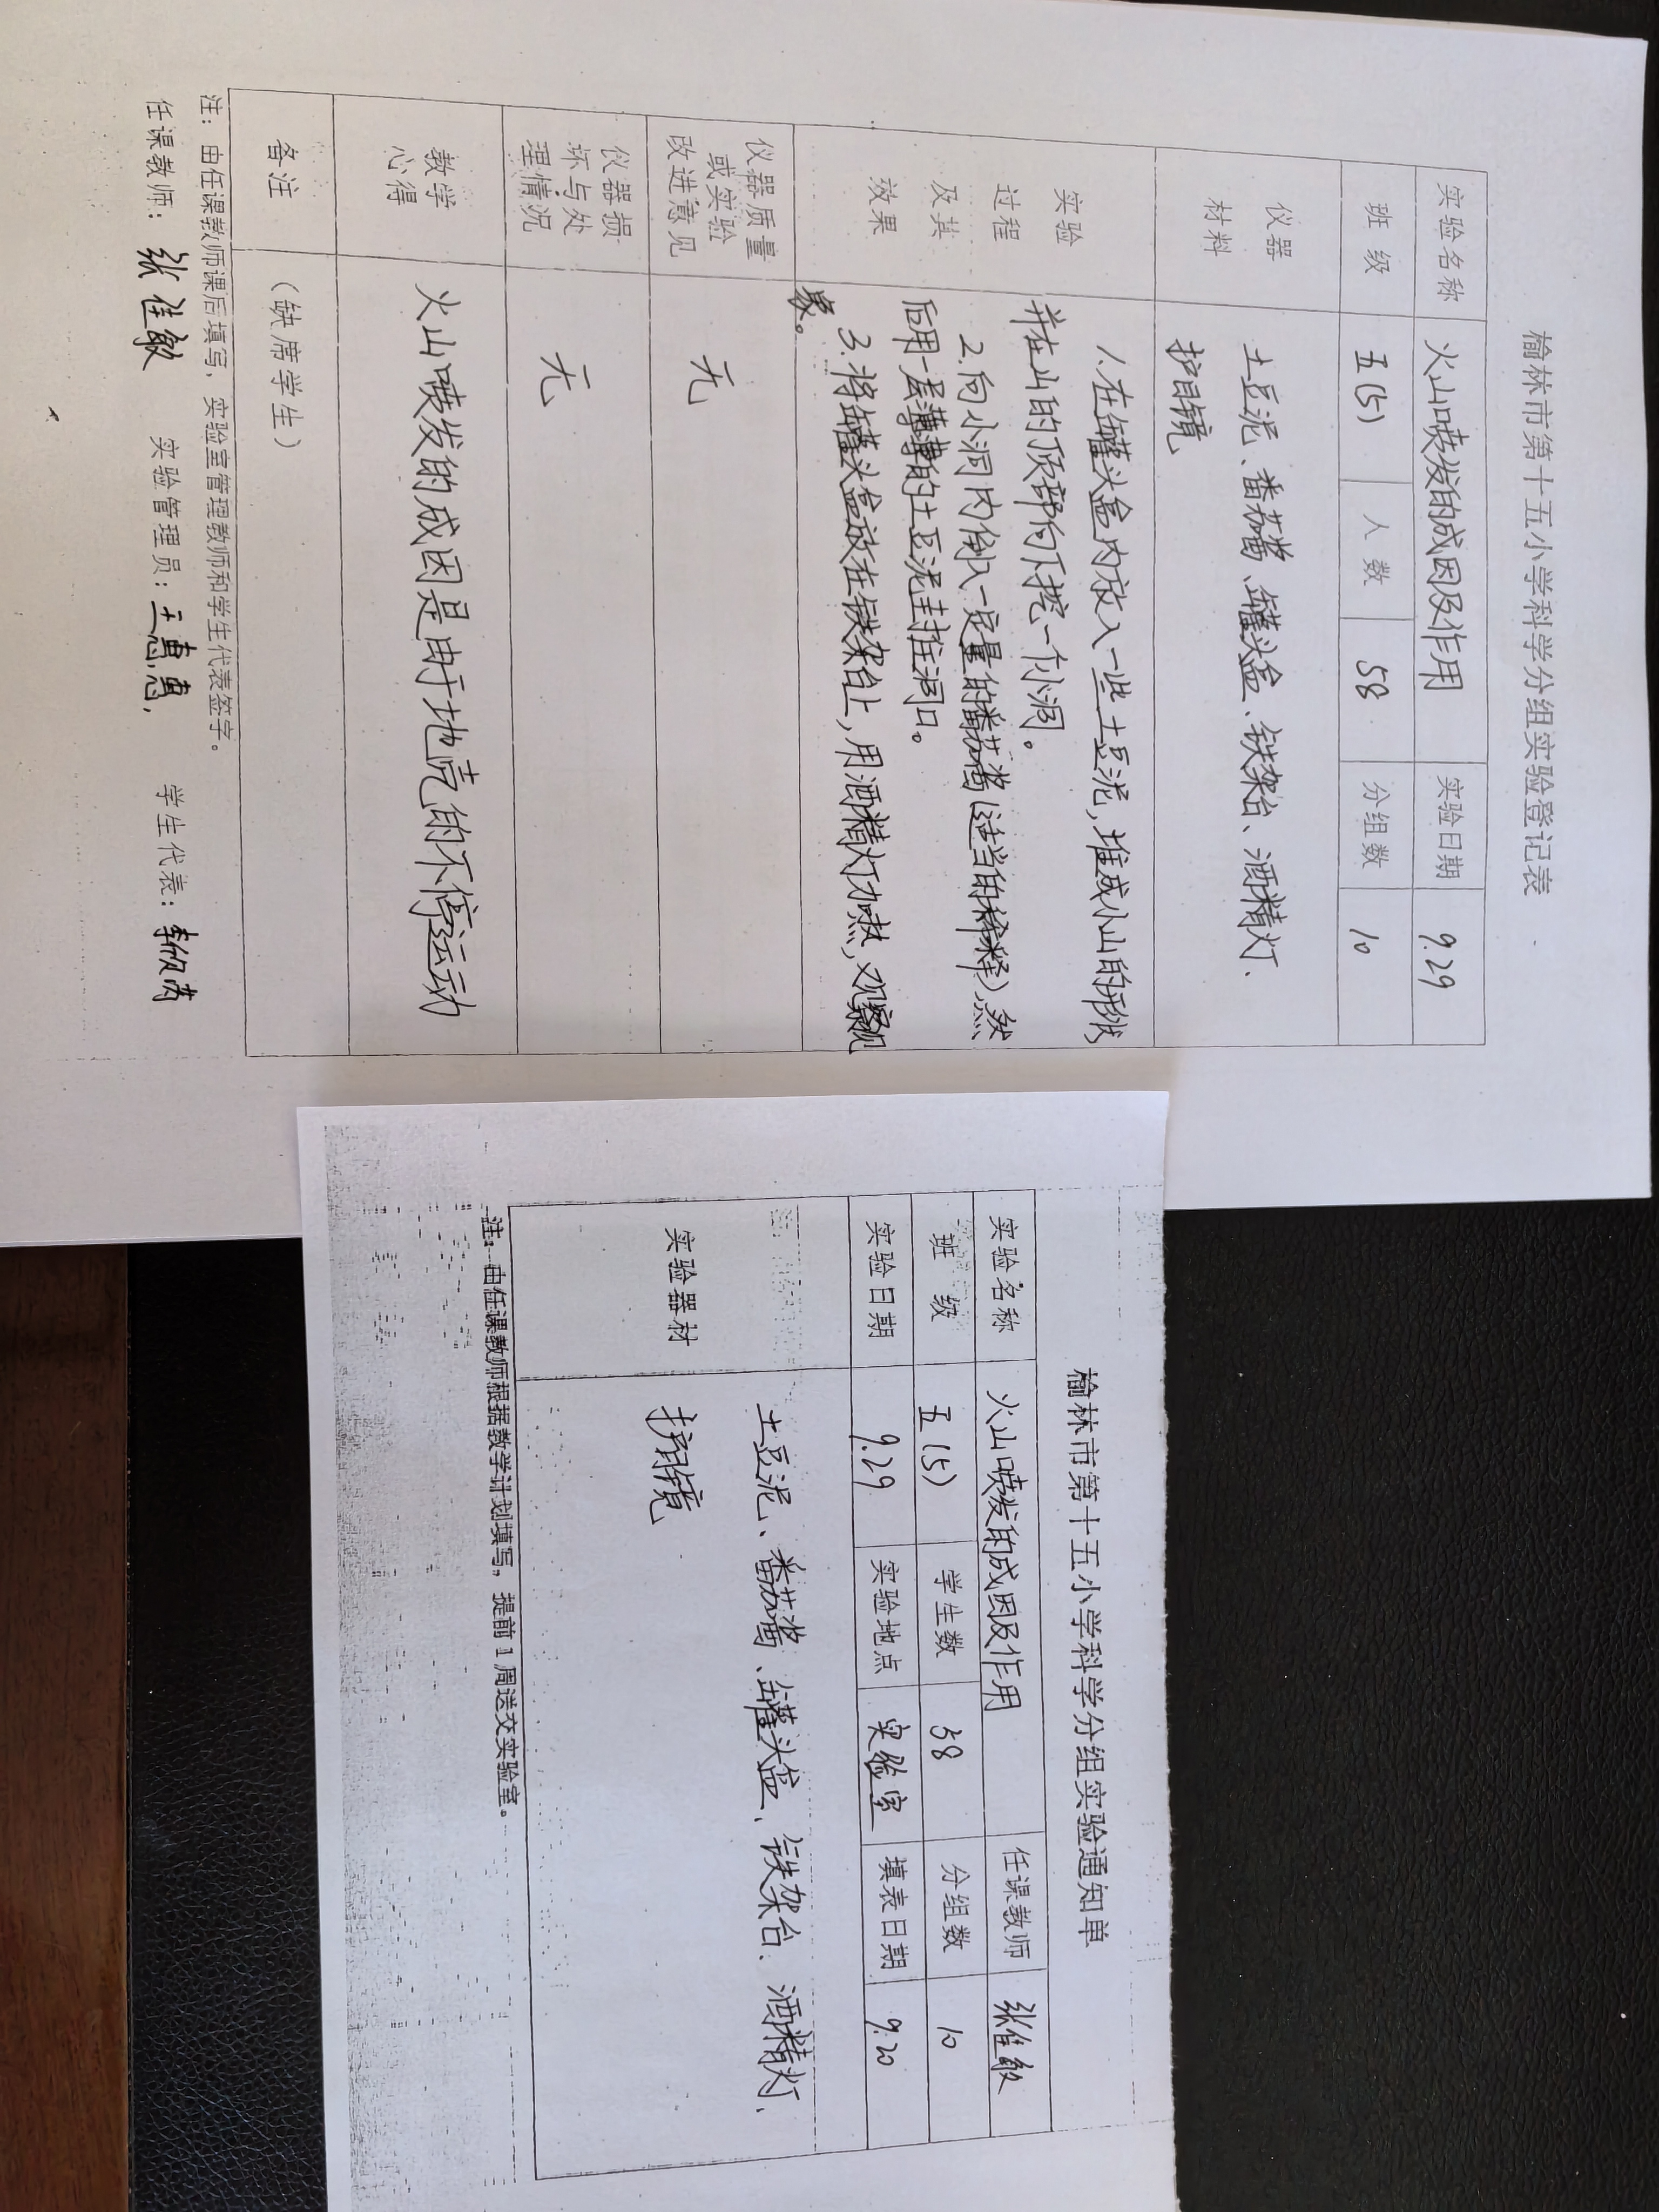 榆林市第十五小学科学分组实验登记表
实验名称 火山喷发的成因及作用 实验日期 9.29
班级 五(5) 人数 58 分组数 10
仪器材料 土豆泥、番茄酱、罐头盒、铁架台、酒精灯、
护目镜
实验过程及其效果 1.在罐头盒内放入一些土豆泥,堆成小山的形状,
并在山的顶部向下挖一个小洞。
2.向小洞内倒入一定量的番茄酱(适当的稀释)然
后用一层薄薄的土豆泥封住洞口。
3.将罐头盒放在铁架台上,用酒精灯加热,观察现
象。
仪器质量或实验改进意见 无
仪器损坏与处理情况 无
教学心得 火山喷发的成因是由于地壳的不停运动
备注 (缺席学生)
注:由任课教师课后填写,实验室管理教师和学生代表签字。
任课教师:张佳敏 实验管理员:王惠惠, 学生代表:
榆林市第十五小学科学分组实验通知单
实验名称 火山喷发的成因及作用 任课教师 张佳敏
班级 五(5) 学生数 58 分组数 10
实验日期 9.29 实验地点 实验室 填表日期 9.20
实验器材 土豆泥、番茄酱、罐头盒、铁架台、酒精灯、
护目镜
注:由任课教师根据教学计划填写,提前1周送交实验室。